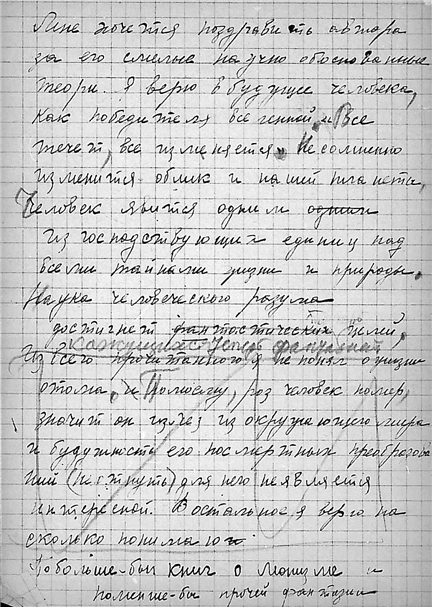 Мне хочется поздравить автора
за его смелые научно обоснованные
теори. Я верю в будущее человека,
как победителя вселенной, и все
течет, все изменяется. Несомненно
изменится облик и нашей планеты,
Человек явится одним
из господствующих единиц над
всеми тайнами жизни и природы.
Наука человеческого разума
достигнет фантастических целей,
кажущихся теперь фантазией
Из всего прочитанного я не понял о жизни
атома, и По-моему, раз человек помер,
значит он исчез из окружающего мира
и будущность его посмертных преобразова
ний для него не является
интересной. В остальное я верю на
сколько понимаю
Побольше-бы книг о Монизме и
поменьше-бы прочей фантазии